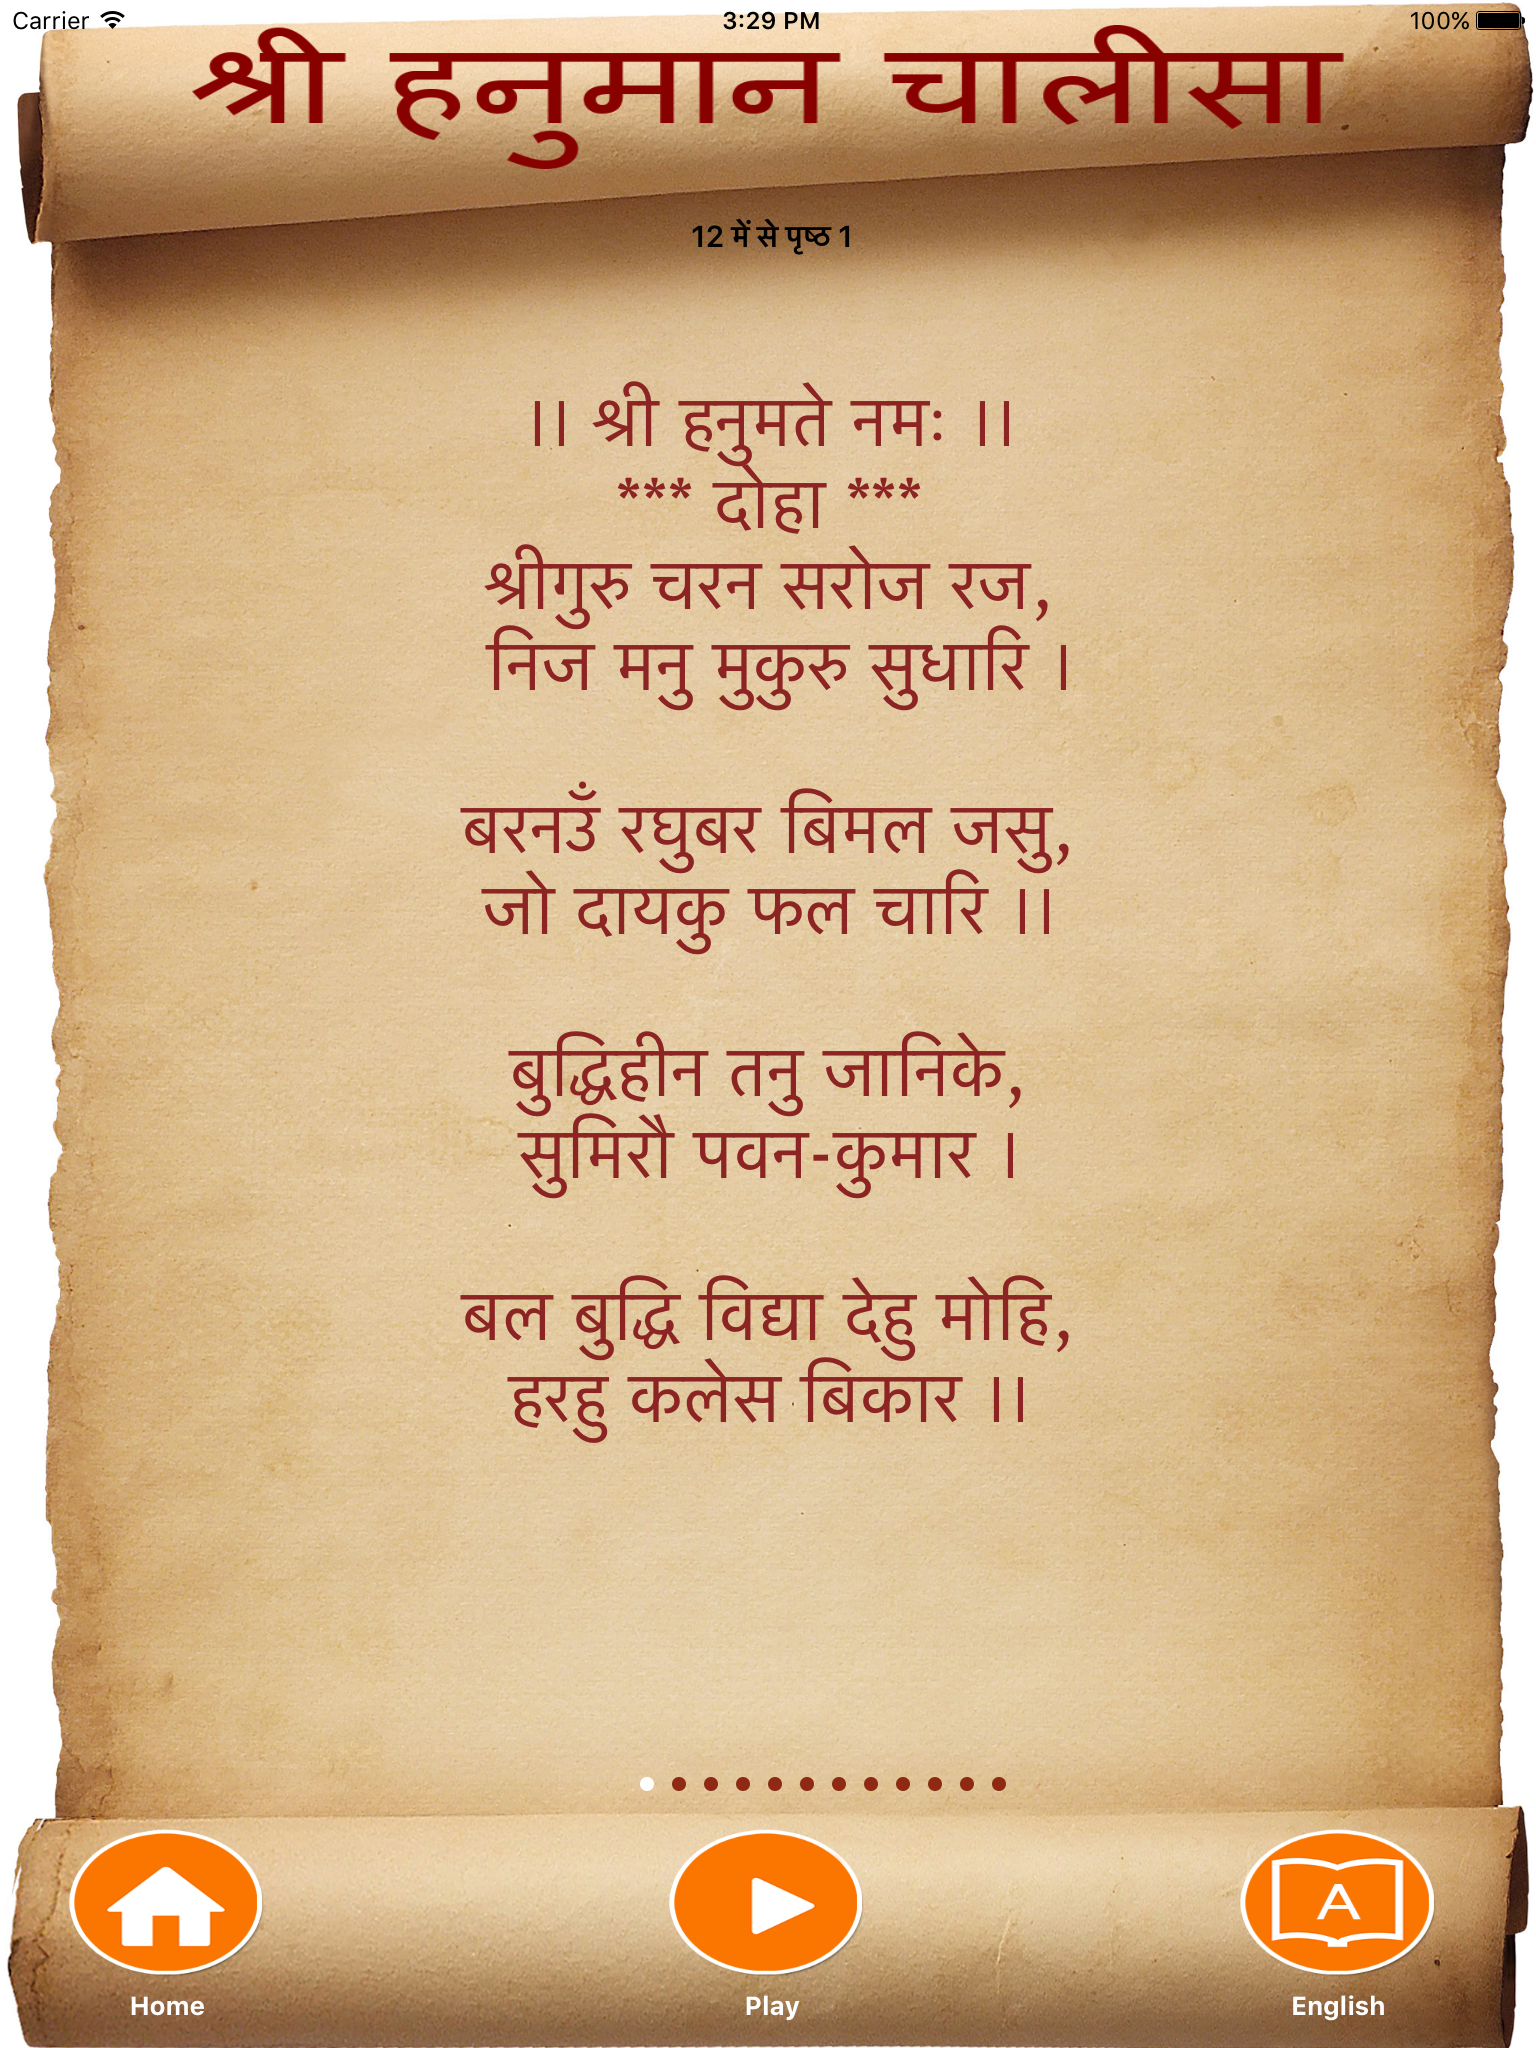 Carrier 3:29 PM 100%
श्री हनुमान चालीसा
12 में से पृष्ठ 1
।। श्री हनुमते नमः ।।
*** दोहा ***
श्रीगुरु चरन सरोज रज,
निज मनु मुकुरु सुधारि ।
बरनउँ रघुबर बिमल जसु,
जो दायकु फल चारि ।।
बुद्धिहीन तनु जानिके,
सुमिरौ पवन-कुमार ।
बल बुद्धि विद्या देहु मोहि,
हरहु कलेस बिकार ।।
A
Home Play English